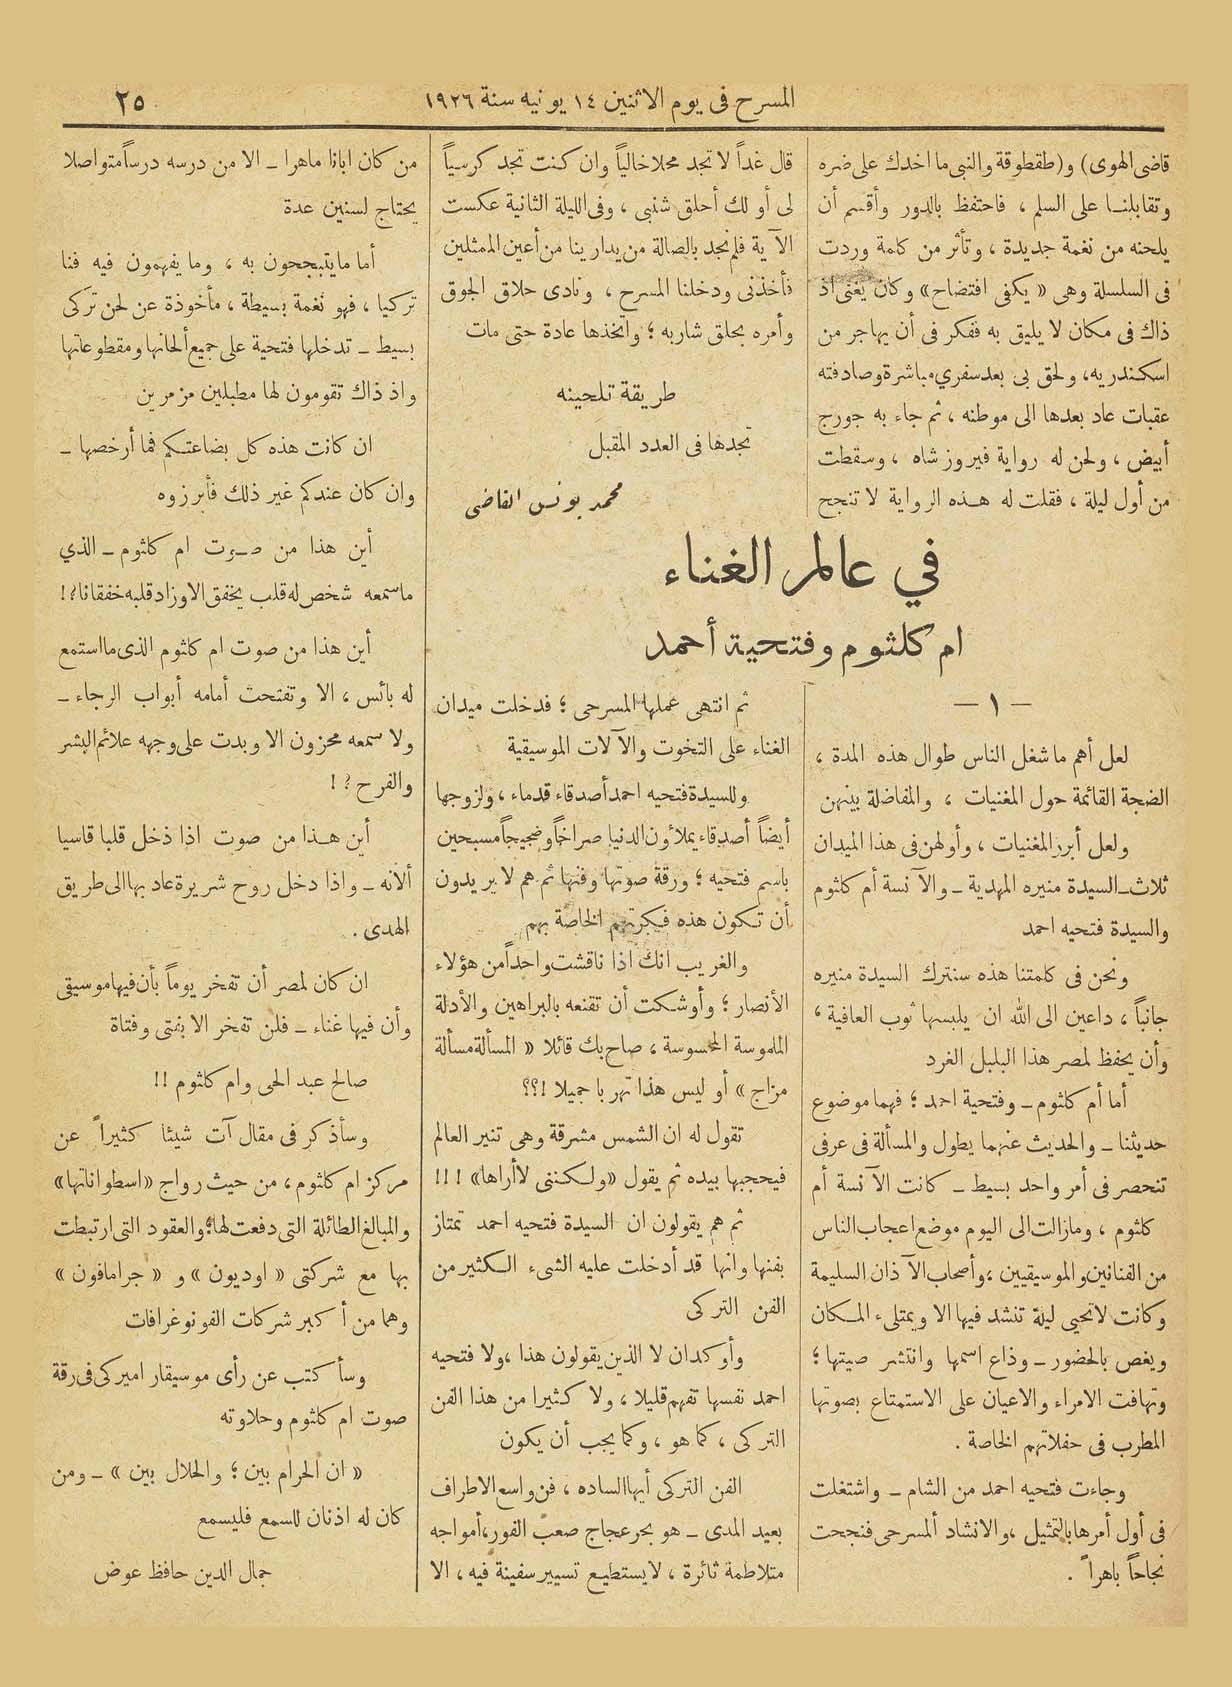 المسرح فى يوم الاثنين ١٤ يونيه سنة ١٩٢٦
٢٥
قاضى الهوى) و(طقطوقة والنبى ما اخدك على ضره
وتقابلنا على السلم ، فاحتفظ بالدور وأقسم أن
يلحنه من نغمة جديدة ، وتأثر من كلمة وردت
فى السلسلة وهى « يكفى افتضاح» وكان يغنى اذ
ذاك فى مكان لا يليق به ففكر فى أن يهاجر من
اسكندريه، ولحق بى بعد سفري مباشرة وصادفته
عقبات عاد بعدها الى موطنه ، ثم جاء به جورج
أبيض ، ولحن له رواية فيروز شاه ، وسقطت
من أول ليلة ، فقلت له هذه الرواية لا تنجح
قال غداً لا تجد محلا خالياً وان كنت تجد كرسياً
لى أو لك أحلق شنبى ، وفى الليلة الثانية عكست
الآية فلم نجد بالصالة من يدارينا من أعين الممثلين
فأخذنى ودخلنا المسرح ، ونادى حلاق الجوق
وأمره بحلق شاربه ؛ واتخذها عادة حتى مات
طريقة تلحينه
تجدها فى العدد المقبل
محمد يونس القاضى
في عالم الغناء
ام كلثوم وفتحية أحمد
— ١ —
لعل أهم ما شغل الناس طوال هذه المدة ،
الضجة القائمة حول المغنيات ، والمفاضلة بينهن
ولعل أبرز المغنيات ، وأولهن فى هذا الميدان
ثلاث ــ السيدة منيره المهدية ــ والآنسة أم كلثوم
والسيدة فتحيه احمد
ونحن فى كلمتنا هذه سنترك السيدة منيره
جانباً ، داعين الى الله ان يلبسها ثوب العافية ،
وأن يحفظ لمصر هذا البلبل الغرد
أما أم كلثوم ــ وفتحية احمد ؛ فهما موضوع
حديثنا ــ والحديث عنهما يطول والمسألة فى عرفى
تنحصر فى أمر واحد بسيط ــ كانت الآنسة أم
كلثوم ، ومازالت الى اليوم موضع اعجاب الناس
من الفنانين والموسيقيين ، وأصحاب الآذان السليمة
وكانت لا تحيى ليلة تنشد فيها الا ويمتلىء المكان
ويغص بالحضور ــ وذاع اسمها وانتشر صيتها ؛
وتهافت الامراء والاعيان على الاستمتاع بصوتها
المطرب فى حفلاتهم الخاصة .
وجاءت فتحيه احمد من الشام ــ واشتغلت
فى أول أمرها بالتمثيل ، والانشاد المسرحى فنجحت
نجاحاً باهراً .
ثم انتهى عملها المسرحى ؛ فدخلت ميدان
الغناء على التخوت والآلات الموسيقية
وللسيدة فتحيه احمد أصدقاء قدماء ، ولزوجها
أيضاً أصدقاء يملأون الدنيا صراخاً وضجيجاً مسبحين
باسم فتحيه ؛ ورقة صوتها وفنها ثم هم لا يريدون
أن تكون هذه فكرتهم الخاصة بهم
والغريب انك اذا ناقشت واحداً من هؤلاء
الأنصار ؛ وأوشكت أن تقنعه بالبراهين والأدلة
الملموسة المحسوسة ، صاح بك قائلا « المسألة مسألة
مزاج » أو ليس هذا تهربا جميلا !؟؟
تقول له ان الشمس مشرقة وهى تنير العالم
فيحجبها بيده ثم يقول «ولكننى لا أراها» !!!
ثم هم يقولون ان السيدة فتحيه احمد تمتاز
بفنها وانها قد أدخلت عليه الشىء الكثير من
الفن التركى
وأوكد ان لا الذين يقولون هذا ، ولا فتحيه
احمد نفسها تفهم قليلا ، ولا كثيرا من هذا الفن
التركى ، كما هو ، وكما يجب أن يكون
الفن التركى أيها الساده ، فن واسع الاطراف
بعيد المدى ــ هو بحر عجاج صعب الغور ، أمواجه
متلاطمة ثائرة ، لا يستطيع تسيير سفينة فيه ، الا
من كان ابانا ماهرا ــ الا من درسه درساً متواصلا
يحتاج لسنين عدة
أما ما يتبجحون به ، وما يفهمون فيه فنا
تركيا ، فهو نغمة بسيطة ، مأخوذة عن لحن تركى
بسيط ــ تدخلها فتحية على جميع ألحانها ومقطوعاتها
واذ ذاك تقومون لها مطبلين مزمرين
ان كانت هذه كل بضاعتكم فما أرخصها ــ
وان كان عندكم غير ذلك فأبرزوه
أين هذا من صوت ام كلثوم ــ الذي
ما سمعه شخص له قلب يخفق الا وزاد قلبه خفقانا ؟!
أين هذا من صوت ام كلثوم الذى ما استمع
له بائس ، الا وتفتحت أمامه أبواب الرجاء ــ
ولا سمعه محزون الا وبدت على وجهه علائم البشر
والفرح ؟ !
أين هذا من صوت اذا دخل قلبا قاسيا
ألانه ــ واذا دخل روح شريرة عاد بها الى طريق
الهدى .
ان كان لمصر أن تفخر يوماً بأن فيها موسيقى
وأن فيها غناء ــ فلن تفخر الا بفتى وفتاة
صالح عبد الحى وام كلثوم !!
وسأذكر فى مقال آت شيئا كثيراً عن
مركز ام كلثوم ، من حيث رواج «اسطواناتها»
والمبالغ الطائلة التى دفعت لها ؛ والعقود التى ارتبطت
بها مع شركتى « اوديون » و « جرامافون »
وهما من أكبر شركات الفونوغرافات
وسأكتب عن رأى موسيقار اميركى فى رقة
صوت ام كلثوم وحلاوته
« ان الحرام بين ؛ والحلال بين » ــ ومن
كان له اذنان للسمع فليسمع
جمال الدين حافظ عوض